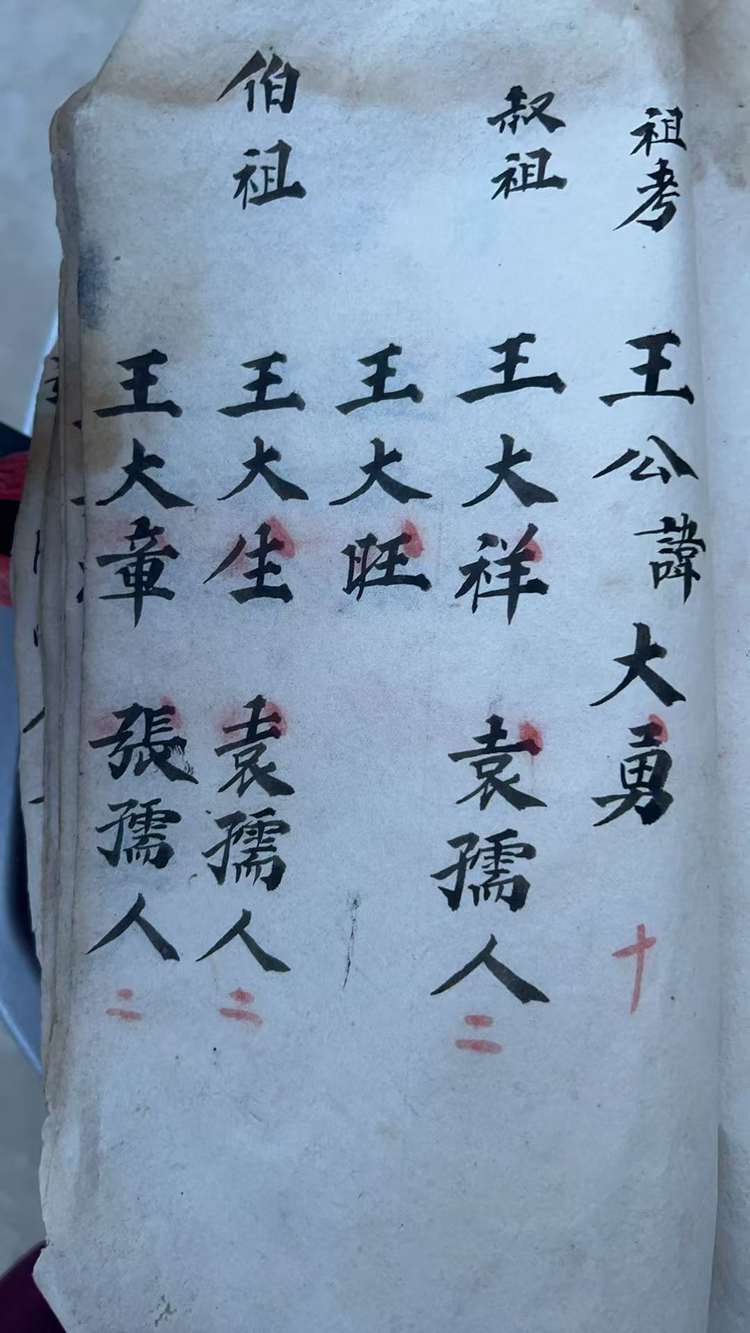 祖考 王公諱大勇 十
叔祖 王大祥 袁孺人 二
王大旺
伯祖 王大生 袁孺人 二
王大章 張孺人 二